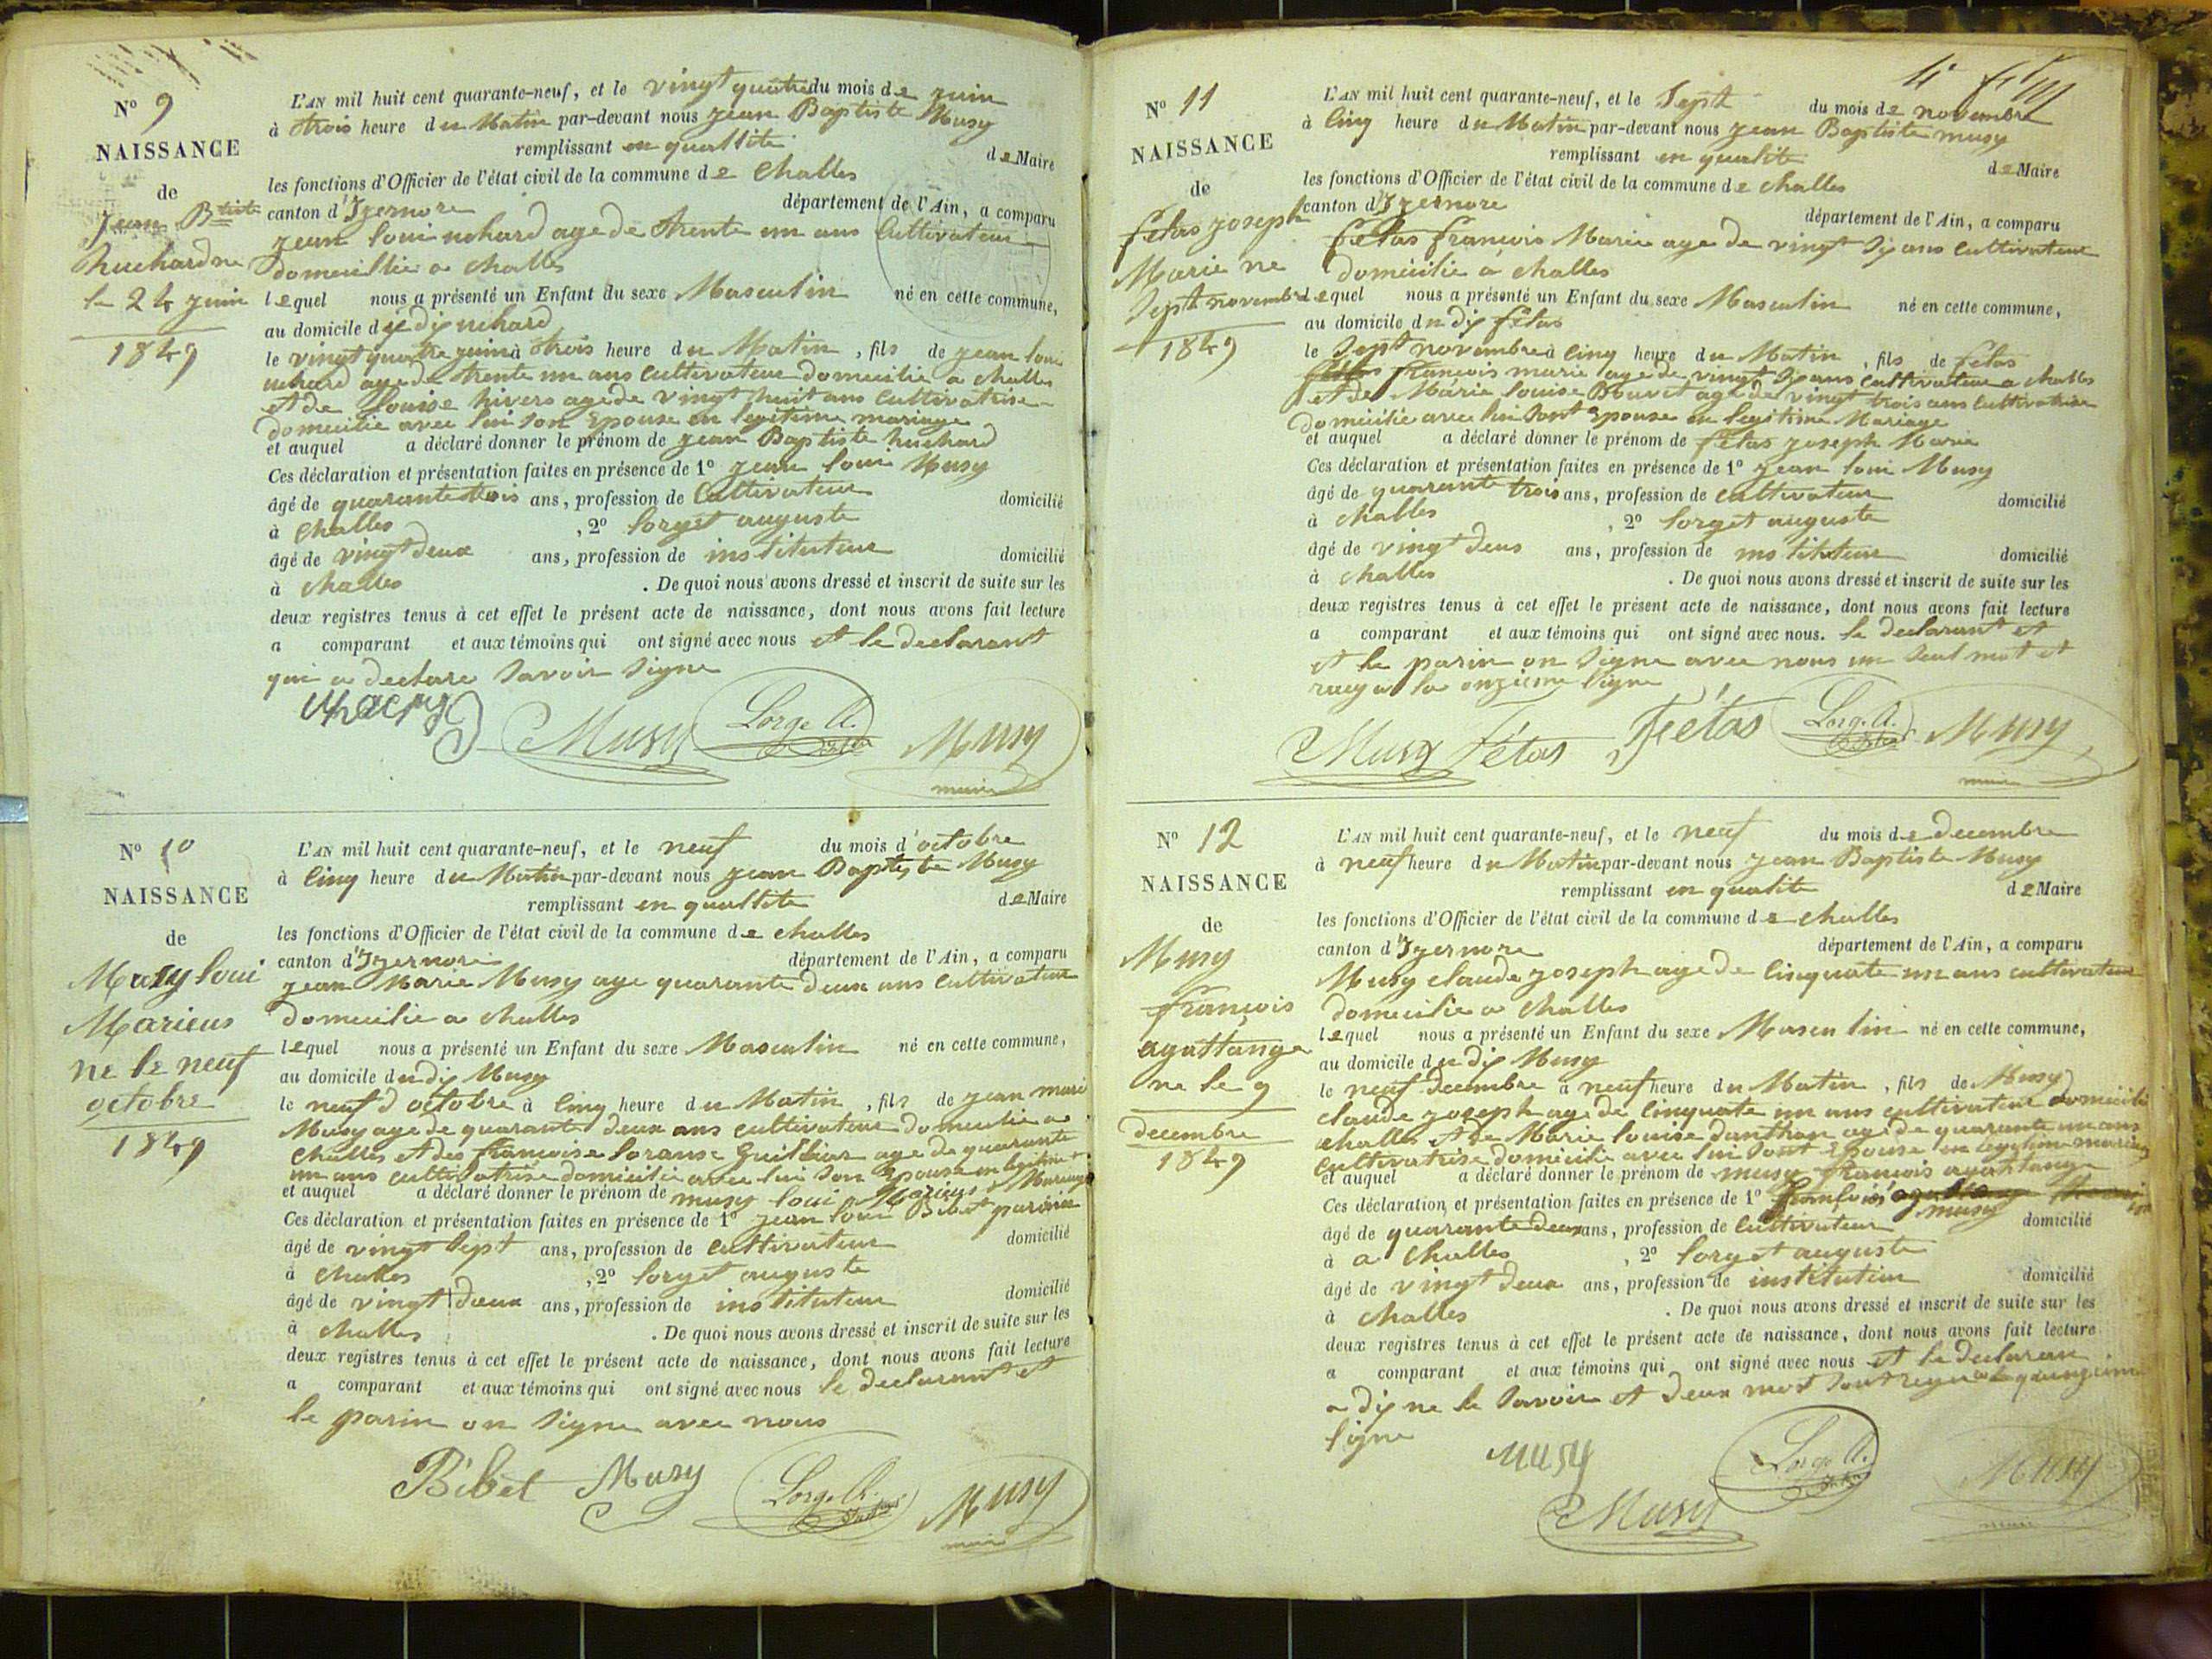 N° 9
NAISSANCE
de
Jean Btiste
huchard ne
le 24 juin
1849
L'AN mil huit cent quarante-neuf, et le vingt quatre du mois de juin
à trois heure du Matin par-devant nous jean Baptiste Musy
remplissant en quallité de Maire
les fonctions d'Officier de l'état civil de la commune de Challes
canton d'Izernore département de l'Ain, a comparu
jean loui uchard age de trente un ans Cultivateur
domicillié a challes
lequel nous a présenté un Enfant du sexe Masculin né en cette commune,
au domicile du dis uchard
le vingt quatre juin à trois heure du Matin, fils de jean loui
uchard age de trente un ans cultivateur domicilié a challes
et de Louise hivers age de vingt huit ans cultivatrise
domicilié avec lui son Epouse en legitime mariage
et auquel a déclaré donner le prénom de jean Baptiste huchard
Ces déclaration et présentation faites en présence de 1° jean loui Musy
âgé de quarante trois ans, profession de Cultivateur domicilié
à Challes, 2° lorget auguste
âgé de vingt deux ans, profession de instituteur domicilié
à challes. De quoi nous avons dressé et inscrit de suite sur les
deux registres tenus à cet effet le présent acte de naissance, dont nous avons fait lecture
a comparant et aux témoins qui ont signé avec nous et le declarant
qui a declare savoir signe
Musy Lorge A. Musy
maire
N° 10
NAISSANCE
de
Musy loui
Marieus
ne le neuf
octobre
1849
L'AN mil huit cent quarante-neuf, et le neuf du mois d'octobre
à cinq heure du Matin par-devant nous jean Baptiste Musy
remplissant en quallité de Maire
les fonctions d'Officier de l'état civil de la commune de challes
canton d'Izernore département de l'Ain, a comparu
jean Marie Musy age quarante deux ans cultivateur
domicilié a challes
lequel nous a présenté un Enfant du sexe Masculin né en cette commune,
au domicile du dis Musy
le neuf d octobre à cinq heure du Matin, fils de jean marie
Musy age de quarante deux ans cultivateur domicilié a
challes et des francoise loranse Guillier age de quarante
un ans cultivatrise domicilié avec lui son Epouse en legitime Mariage
et auquel a déclaré donner le prénom de musy loui Marieus
Ces déclaration et présentation faites en présence de 1° jean loui Bibet parain
âgé de vingt sept ans, profession de cultivateur domicilié
à challes, 2° lorget auguste
âgé de vingt deux ans, profession de instituteur domicilié
à challes. De quoi nous avons dressé et inscrit de suite sur les
deux registres tenus à cet effet le présent acte de naissance, dont nous avons fait lecture
a comparant et aux témoins qui ont signé avec nous le declarant et
le parin on signe avec nous
Bibet Musy Lorge A. Musy
maire
N° 11
NAISSANCE
de
fétas joseph
Marie ne
sept novembre
1849
L'AN mil huit cent quarante-neuf, et le sept du mois de novembre
à cinq heure du Matin par-devant nous jean Baptiste musy
remplissant en qualité de Maire
les fonctions d'Officier de l'état civil de la commune de challes
canton d'Izernore département de l'Ain, a comparu
fétas francois Marie age de vingt six ans cultivateur
domicilié a challes
lequel nous a présenté un Enfant du sexe Masculin né en cette commune,
au domicile du dis fétas
le sept novembre à cinq heure du Matin, fils de fétas
francois marie age de vingt six ans cultivateur a challes
et de Marie louise Bouvet age de vingt trois ans cultivatrise
domicilié avec lui sont Epouse en legitime Mariage
et auquel a déclaré donner le prénom de fétas joseph Marie
Ces déclaration et présentation faites en présence de 1° jean loui Musy
âgé de quarante trois ans, profession de cultivateur domicilié
à challes, 2° lorget auguste
âgé de vingt deus ans, profession de instituteur domicilié
à challes. De quoi nous avons dressé et inscrit de suite sur les
deux registres tenus à cet effet le présent acte de naissance, dont nous avons fait lecture
a comparant et aux témoins qui ont signé avec nous. le declarant et
et le parin on signe avec nous un seul mot et
raey a la onzieme ligne
Musy Fétas Fétas Lorg. A. Musy
maire
N° 12
NAISSANCE
de
Musy
francois
agattange
ne le 9
decembre
1849
L'AN mil huit cent quarante-neuf, et le neuf du mois de decembre
à neuf heure du Matin par-devant nous jean Baptiste Musy
remplissant en qualité de Maire
les fonctions d'Officier de l'état civil de la commune de challes
canton d'Izernore département de l'Ain, a comparu
Musy claude joseph age de cinquate un ans cultivateur
domicilié a challes
lequel nous a présenté un Enfant du sexe Masculin né en cette commune,
au domicile du dis Musy
le neuf decembre à neuf heure du Matin, fils de Musy
claude joseph age de cinquate un ans cultivateur domicilié
challes et de Marie louise danthon age de quarante un ans
cultivatrise domicilié avec lui sont Epouse en legitime mariage
et auquel a déclaré donner le prénom de musy francois agattange
Ces déclaration et présentation faites en présence de 1° musy
âgé de quarante deux ans, profession de cultivateur domicilié
à a challes, 2° lorget auguste
âgé de vingt deux ans, profession de instituteur domicilié
à challes. De quoi nous avons dressé et inscrit de suite sur les
deux registres tenus à cet effet le présent acte de naissance, dont nous avons fait lecture
a comparant et aux témoins qui ont signé avec nous et le declaran
a dis ne le savoir et deux mot sont reye a la quinzieme
ligne
Musy Lorge A. Musy
Musy